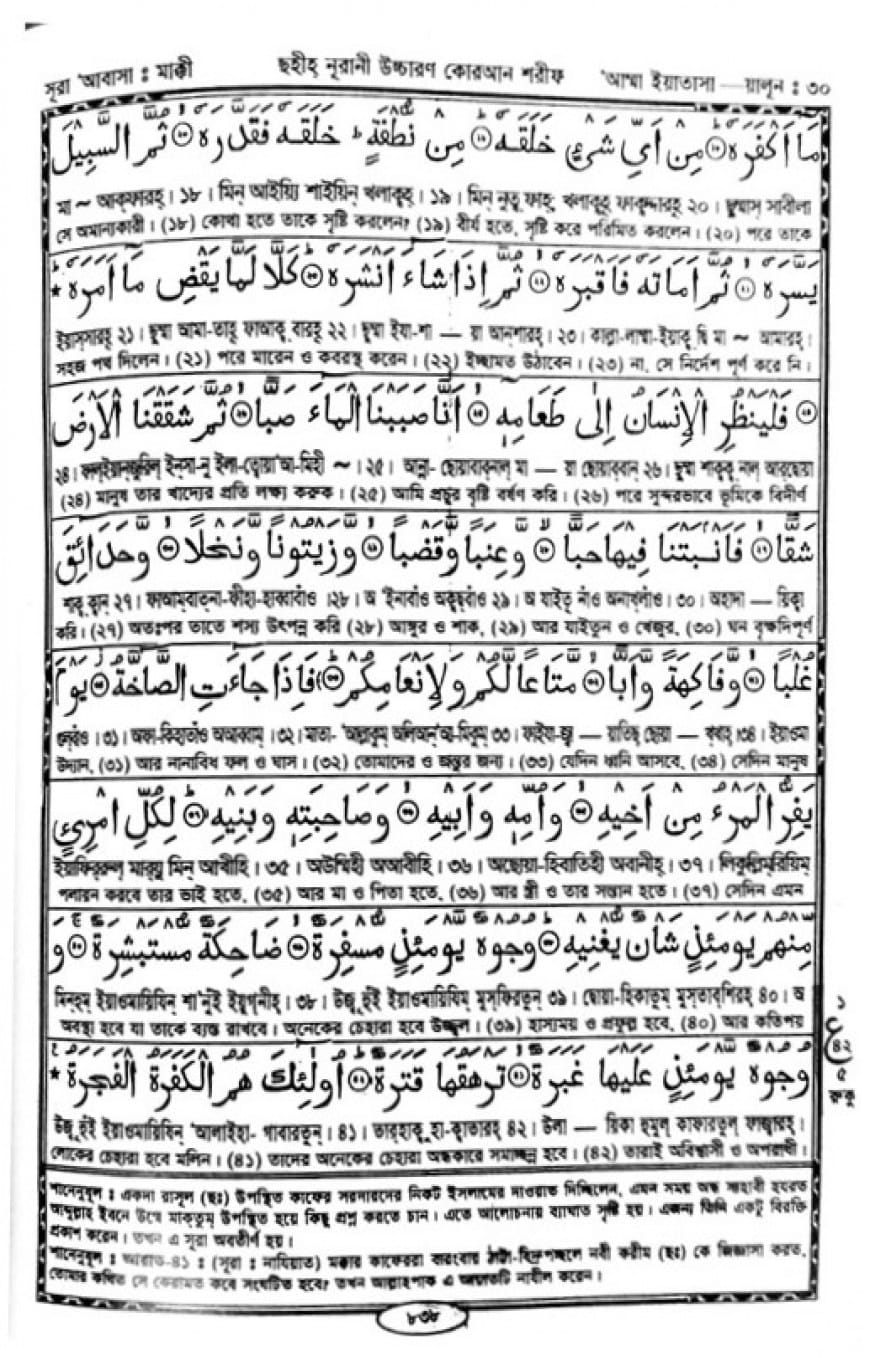 সূরা 'আবাসা : মাক্কী ছহীহ্ নূরানী উচ্চারণ কোরআন শরীফ 'আম্মা ইয়াতাসা —য়ালূন : ৩০
مَا اَكْفَرَهٗ ⑰ مِنْ اَيِّ شَيْءٍ خَلَقَهٗ ⑱ مِنْ نُّطْفَةٍ ؕ خَلَقَهٗ فَقَدَّرَهٗ ⑲ ثُمَّ السَّبِيْلَ
মা ~ আক্ফারহ্। ১৮। মিন্ আইয়্যি শাইয়িন্ খলাক্বহ্। ১৯। মিন্ নুত্ব্ ফাহ্; খলাক্বহূ ফাক্বদ্দারহূ ২০। ছুম্মাস্ সাবীলা
সে অমান্যকারী। (১৮) কোথা হতে তাকে সৃষ্টি করলেন? (১৯) বীর্য হতে, সৃষ্টি করে পরিমিত করলেন। (২০) পরে তাকে
يَسَّرَهٗ ⑳ ثُمَّ اَمَاتَهٗ فَاَقْبَرَهٗ ㉑ ثُمَّ اِذَا شَآءَ اَنْشَرَهٗ ㉒ كَلَّا لَمَّا يَقْضِ مَآ اَمَرَهٗ ★
ইয়াস্সারহূ ২১। ছুম্মা আমা-তাহূ ফাআক্ব্ বারহূ ২২। ছুম্মা ইযা-শা — য়া আন্শারহ্। ২৩। কাল্লা-লাম্মা-ইয়াক্ব্ দ্বি মা ~ আমারহ্।
সহজ পথ দিলেন। (২১) পরে মারেন ও কবরস্থ করেন। (২২) ইচ্ছামত উঠাবেন। (২৩) না, সে নির্দেশ পূর্ণ করে নি।
㉔ فَلْيَنْظُرِ الْاِنْسَانُ اِلٰى طَعَامِهٖٓ ㉔ اَنَّا صَبَبْنَا الْمَآءَ صَبًّا ㉕ ثُمَّ شَقَقْنَا الْاَرْضَ
২৪। ফাল্ইয়ান্জুরিল্ ইন্সা-নু ইলা-ত্বোয়া'আ-মিহী ~ ।২৫। আন্না- ছোয়াবাব্নাল্ মা — য়া ছোয়াব্বান্ ২৬। ছুম্মা শাক্বক্ব্ নাল্ আর্দ্বোয়া
(২৪) মানুষ তার খাদ্যের প্রতি লক্ষ্য করুক। (২৫) আমি প্রচুর বৃষ্টি বর্ষণ করি। (২৬) পরে সুন্দরভাবে ভূমিকে বিদীর্ণ
شَقًّا ㉖ فَاَنْۢبَتْنَا فِيْهَا حَبًّا ㉗ وَّعِنَبًا وَّقَضْبًا ㉘ وَّزَيْتُوْنًا وَّنَخْلًا ㉙ وَّحَدَآئِقَ
শাক্ব্ ক্বান্ ২৭। ফাআম্বাত্না-ফীহা-হাব্বাবাঁও ।২৮। অ 'ইনাবাঁও অক্বদ্ব্বাঁও ২৯। অ যাইত্ নাঁও অনাখ্লাঁও। ৩০। অহাদা — য়িক্বা
করি। (২৭) অতঃপর তাতে শস্য উৎপন্ন করি (২৮) আঙ্গুর ও শাক, (২৯) আর যাইতুন ও খেজুর, (৩০) ঘন বৃক্ষাদিপূর্ণ
غُلْبًا ㉚ وَّفَاكِهَةً وَّاَبًّا ㉛ مَّتَاعًا لَّكُمْ وَلِاَنْعَامِكُمْ ㉜ فَاِذَا جَآءَتِ الصَّآخَّةُ ㉝ يَوْمَ
গুল্বাঁও।৩১। অফা-কিহাতাঁও অআব্বাম্ ।৩২। মাতা- 'আল্লাকুম্ অলিআন্'আ-মিকুম্ ৩৩। ফাইযা-জ্বা — য়াতিছ্ ছোয়া — খ্খাহ্ ।৩৪। ইয়াওমা
উদ্যান, (৩১) আর নানাবিধ ফল ও ঘাস। (৩২) তোমাদের ও জন্তুর জন্য। (৩৩) যেদিন ধ্বনি আসবে, (৩৪) সেদিন মানুষ
يَفِرُّ الْمَرْءُ مِنْ اَخِيْهِ ㉞ وَاُمِّهٖ وَاَبِيْهِ ㉟ وَصَاحِبَتِهٖ وَبَنِيْهِ ㊱ لِكُلِّ امْرِئٍ
ইয়াফির্রুল্ মার্য়ু মিন্ আখীহি। ৩৫। অউম্মিহী অআবীহি। ৩৬। অছোয়া-হিবাতিহী অবানীহ্। ৩৭। লিকুল্লিম্রিয়িম্
পলায়ন করবে তার ভাই হতে, (৩৫) আর মা ও পিতা হতে, (৩৬) আর স্ত্রী ও তার সন্তান হতে। (৩৭) সেদিন এমন
مِّنْهُمْ يَوْمَئِذٍ شَاْنٌ يُّغْنِيْهِ ㊲ وُجُوْهٌ يَّوْمَئِذٍ مُّسْفِرَةٌ ㊳ ضَاحِكَةٌ مُّسْتَبْشِرَةٌ ㊴ وَ
মিন্হুম্ ইয়াওমায়িযিন্ শা'নুঁই ইয়ুগ্নীহ্। ৩৮। উজূ্ হুঁই ইয়াওমায়িযিম্ মুস্ফিরতুন্ ৩৯। দ্বোয়া-হিকাতুম্ মুস্তাব্শিরহ্ ৪০। অ
অবস্থা হবে যা তাকে ব্যস্ত রাখবে। অনেকের চেহারা হবে উজ্জ্বল। (৩৯) হাস্যময় ও প্রফুল্ল হবে, (৪০) আর কতিপয়
وُجُوْهٌ يَّوْمَئِذٍ عَلَيْهَا غَبَرَةٌ ㊵ تَرْهَقُهَا قَتَرَةٌ ㊶ اُولٰٓئِكَ هُمُ الْكَفَرَةُ الْفَجَرَةُ ★
উজূ হুঁই ইয়াওমায়িযিন্ 'আলাইহা- গাবারতুন্। ৪১। তার্হাক্ব্ হা-ক্বাতারহ্ ৪২। উলা — য়িকা হুমুল্ কাফারতুল্ ফাজ্বারহ্।
লোকের চেহারা হবে মলিন। (৪১) তাদের অনেকের চেহারা অন্ধকারে সমাচ্ছন্ন হবে। (৪২) তারাই অবিশ্বাসী ও অপরাধী।
১
ع
৪২
৫
রুকু
শানেনুযূল : একদা রাসূল (ছঃ) উপস্থিত কাফের সরদারদের নিকট ইসলামের দাওয়াত দিচ্ছিলেন, এমন সময় অন্ধ সাহাবী হযরত
আব্দুল্লাহ ইবনে উম্মে মাক্তুম্ উপস্থিত হয়ে কিছু প্রশ্ন করতে চান। এতে আলোচনায় ব্যাঘাত সৃষ্টি হয়। এজন্য তিনি একটু বিরক্তি
প্রকাশ করেন। তখন এ সূরা অবতীর্ণ হয়।
শানেনুযূল : আয়াত-৪১ : (সূরা : নাযিয়াত) মক্কার কাফেররা বারংবার ঠাট্টা-বিদ্রূপচ্ছলে নবী করীম (ছঃ) কে জিজ্ঞাসা করত,
তোমার কথিত সে কেয়ামত কবে সংঘটিত হবে? তখন আল্লাহপাক এ আয়াতটি নাযীল করেন।
৮৩৮